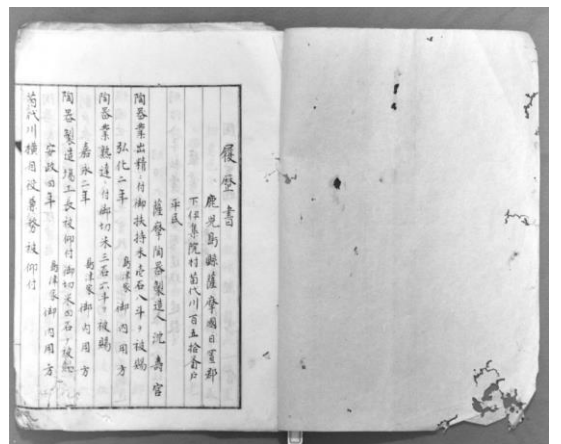 履歴書
鹿児島縣薩摩國日置郡
下伊集院村苗代川百五拾番戸
平民
薩摩陶器製造人 沈壽官
陶器業出精ニ付御扶持米壱石八斗ヲ被賜
弘化二年 島津家御内用方
陶器業熟達ニ付御切米三石六斗ヲ被賜
嘉永二年 島津家御内用方
陶器製造場工長被仰付御切米四石ヲ被
安政四年 島津家御内用方
苗代川横目役兼務被仰付